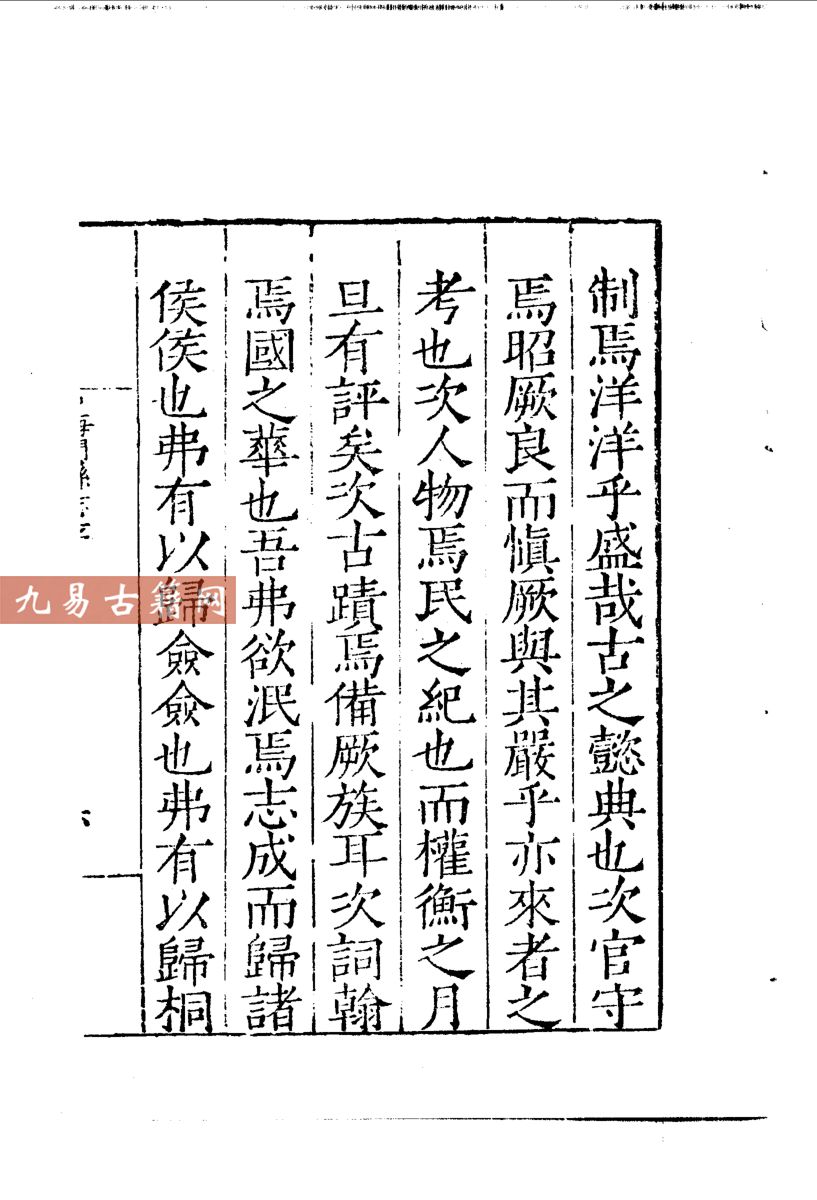 制焉洋洋乎盛哉古之懿典也次官守
焉昭厥良而慎厥與其嚴乎亦來者之
考也次人物焉民之紀也而權衡之月
旦有評矣次古蹟焉備厥族耳次詞翰
焉國之華也吾弗欲泯焉志成而歸諸
侯侯也弗有以歸僉僉也弗有以歸桐
九易古籍网